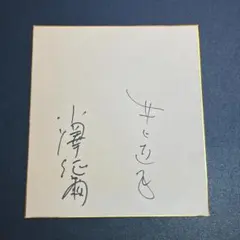 井上道義
小澤征爾